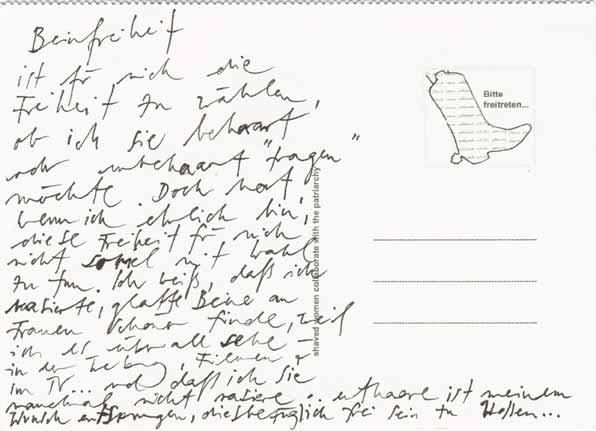 Beinfreiheit
ist für mich die
Freiheit zu wählen,
ob ich sie behaart
oder unbehaart "tragen"
möchte. Doch hat,
wenn ich ehrlich bin,
diese Freiheit für mich
nicht soviel mit Wahl
zu tun. Ich weiß, daß ich
rasierte, glatte Beine an
Frauen schöner finde, weil
ich es überall sehe –
in der Werbung, Filmen &
im TV... und daß ich sie
manchmal nicht rasiere o. enthaare ist meinem
Wunsch entsprungen, diesbezüglich frei sein zu
Bitte
freitreten...
shaved women collaborate with the patriarchy